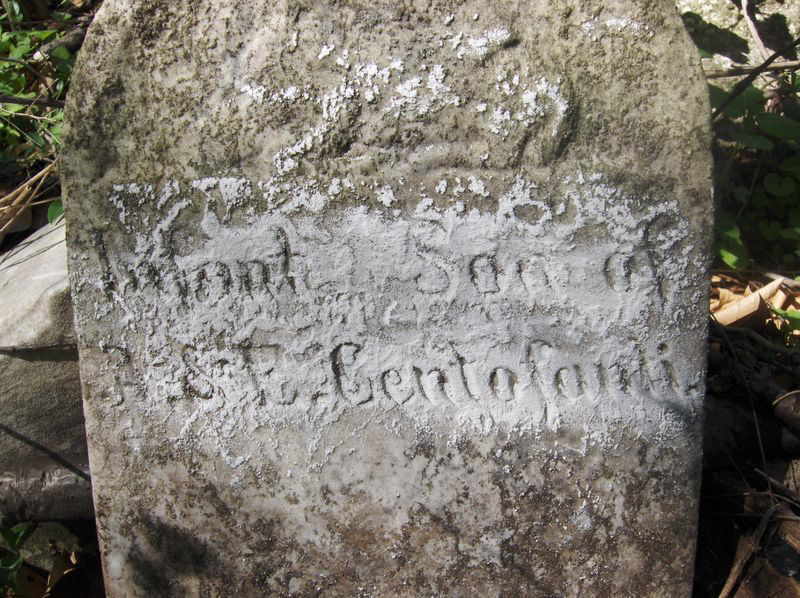 Infant Son of
& E. Centofanti.